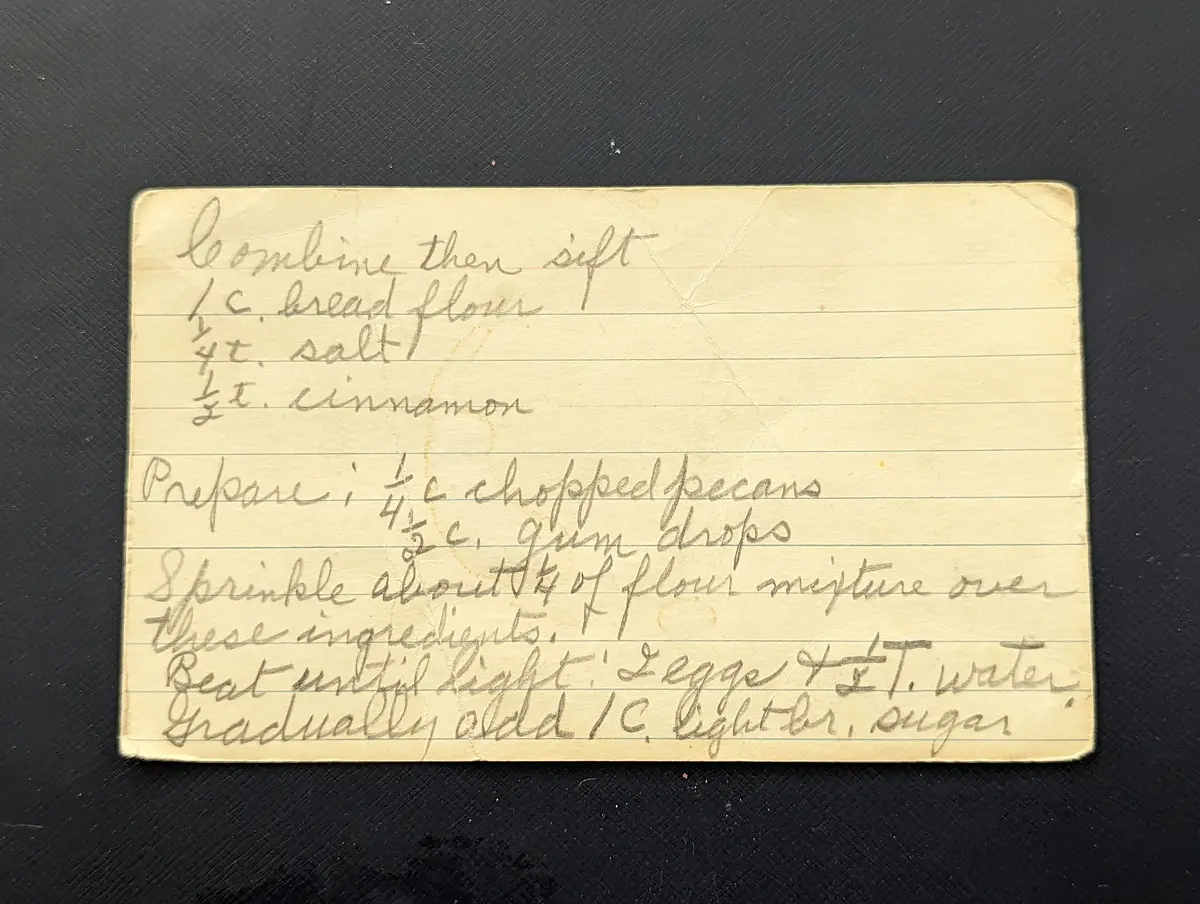 Combine then sift
1 c. bread flour
1/4 t. salt
1/2 t. cinnamon
Prepare: 1/4 c chopped pecans
1/2 c. gum drops
Sprinkle about 1/4 of flour mixture over
these ingredients.
Beat until light: 2 eggs & 1/2 T. water.
Gradually add 1 C. light br. sugar